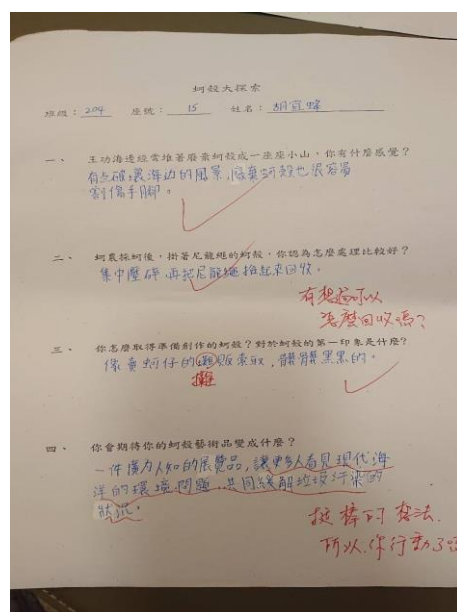 蚵殼大探索
班級：204 座號：15 姓名：胡宣
一、王功海邊經常堆著廢棄蚵殼成一座座小山，你有什麼感覺？
有点破壞海边的風景，廢棄蚵殼也很容易
割傷手腳。
二、蚵農採蚵後，掛著尼龍繩的蚵殼，你認為怎麼處理比較好？
集中壓碎再把尼龍繩撿起來回收。
有想過可以
怎麼回收嗎？
三、你怎麼取得準備創作的蚵殼？對於蚵殼的第一印象是什麼？
像賣蚵仔的販索取，髒髒黑黑的。
攤
四、你會期待你的蚵殼藝術品變成什麼？
一件廣為人知的展覽品，讓更多人看見現代海
洋的環境問題，共同緩解垃圾汙染的
狀況。
挺棒的想法.
所以.你行動了